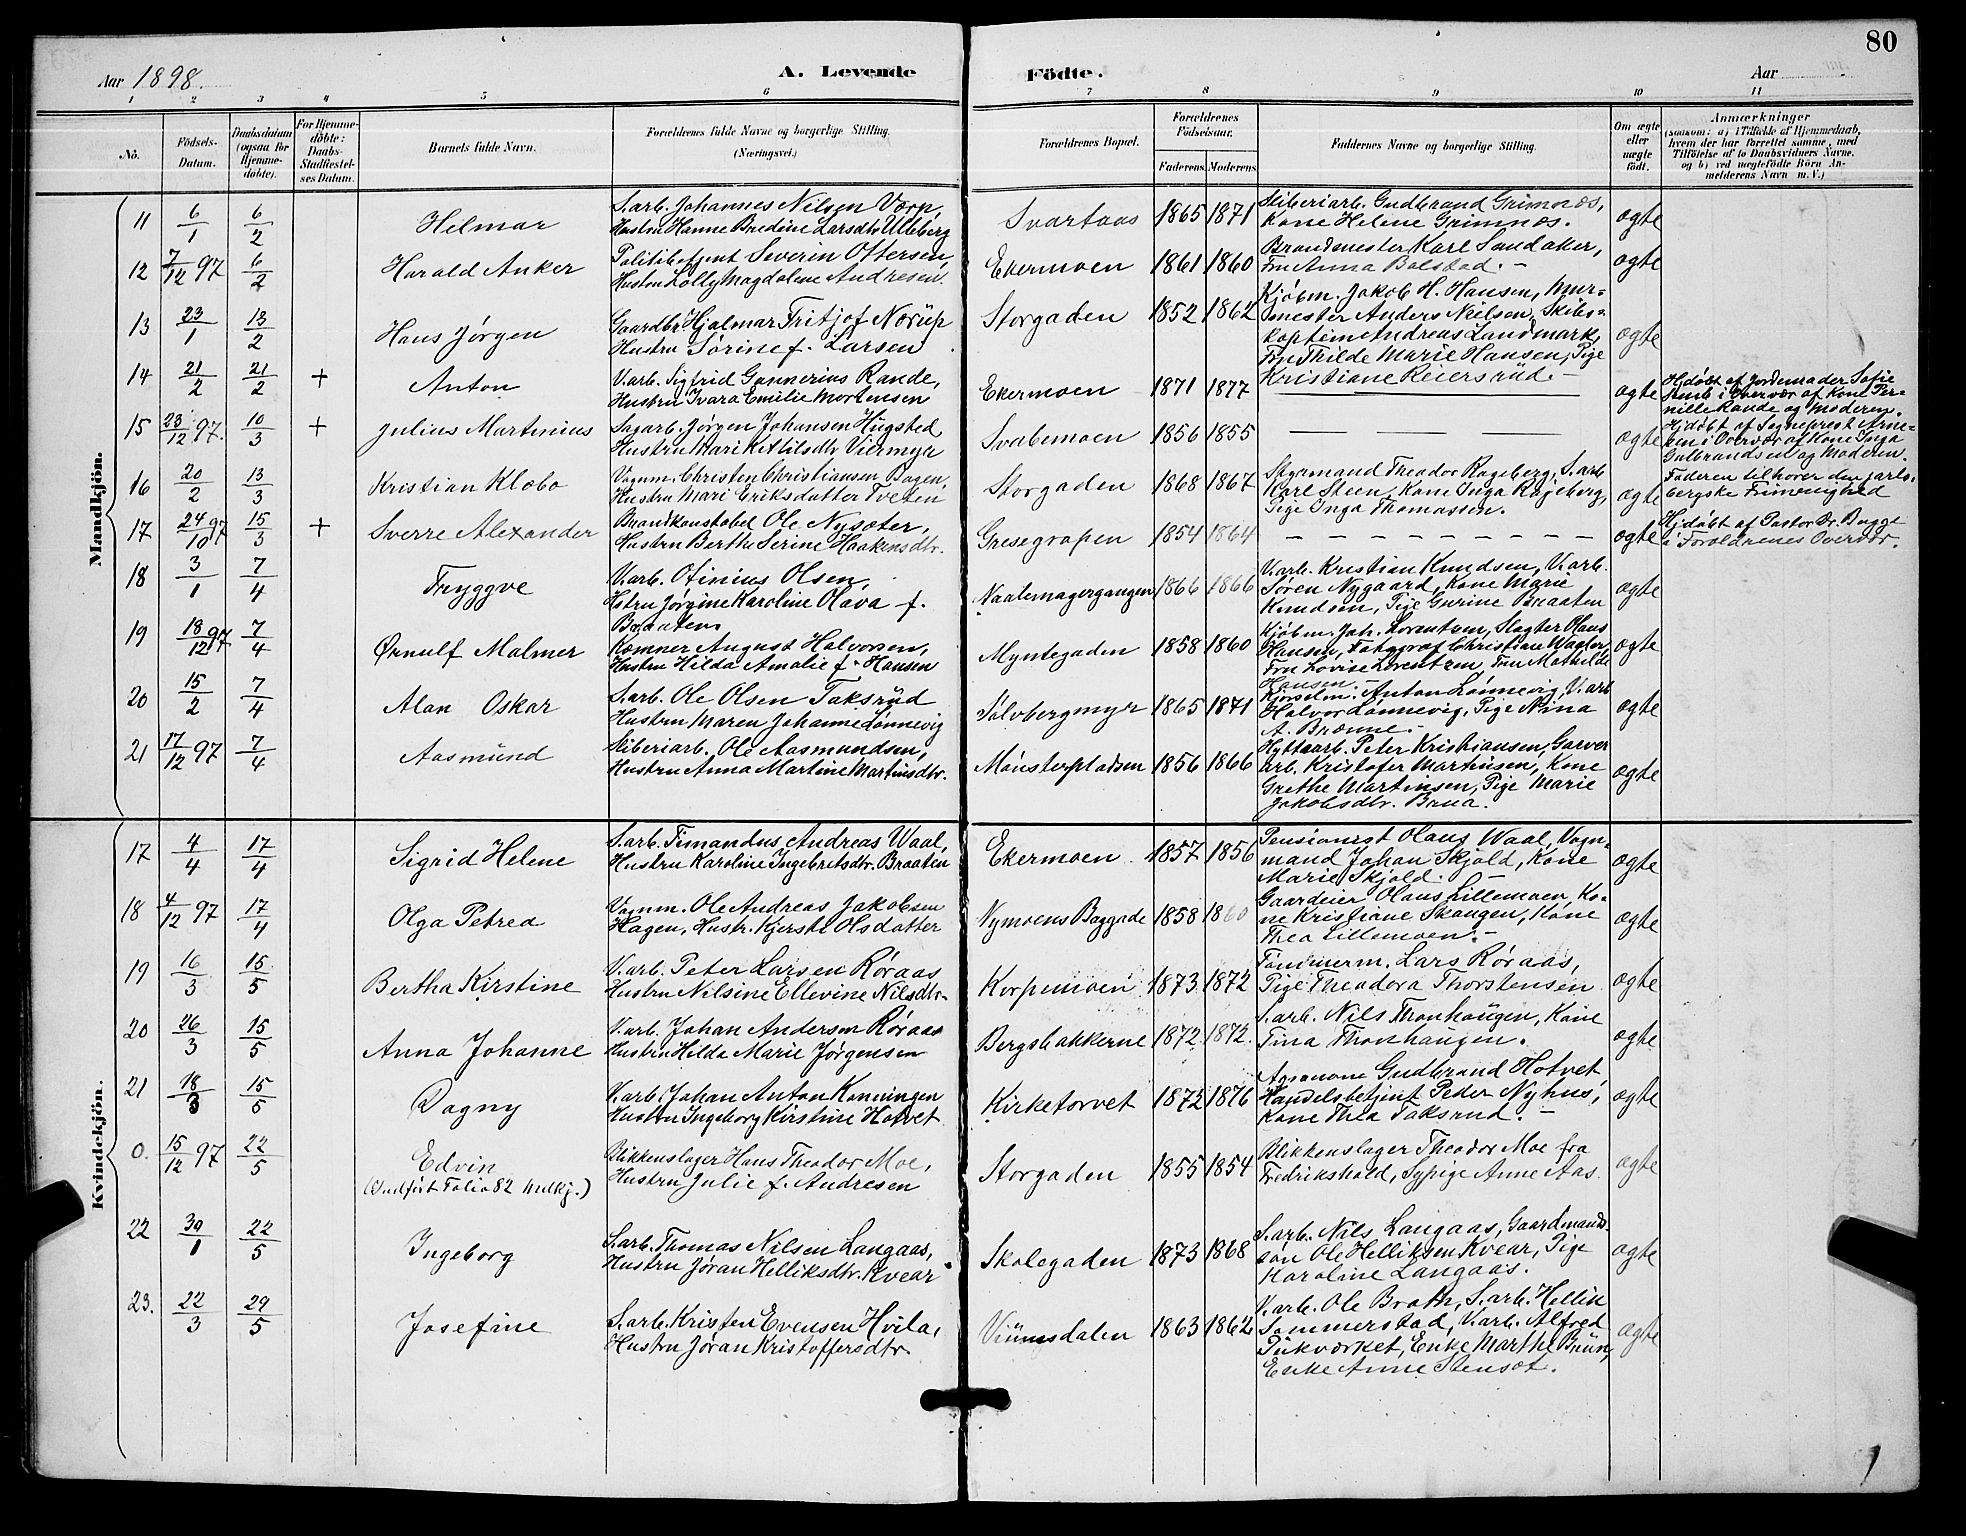 80
Aar 1898.
A. Levende Födte.
Aar
1 2 3 4 5 6 7 8 9 10 11
No.
Födsels-Datum.
Daabsdatum (ogsaa for Hjemme-döbte).
For Hjemme-döbte: Daabs-Stadfæstelses Datum.
Barnets fulde Navn.
Forældrenes fulde Navne og borgerlige Stilling. (Næringsvei.)
Forældrenes Bopæl.
Forældrenes Födselsaar.
Faderens Moderens
Faddernes Navne og borgerlige Stilling.
Om ægte eller uægte födt.
Anmærkninger
(saasom: a) i Tilfælde af Hjemmedaab, hvem der har forrettet samme, med Tilföielse af to Daabsvidners Navne, og b) ved uægtefödte Börn Anmelderens Navn m. V.)
Mandkjön.
11 6/1 6/2 Hilmar
S.arb. Johannes Nilsen Værp,
Hustru Hanne Bredine Larsdtr Ulleberg
Svartaas 1865 1871
Sliberiarb. Gudbrand Grimnæs,
Kone Helene Grimnæs.
ægte
12 7/12 97 6/2 Harald Anker
Politibetjent Severin Ottersen,
Hustru Lolly Magdalene Andresen.
Ekermoen 1861 1860
Brandmester Karl Sandaker,
Fru Anna Bolstad. –
ægte
13 23/1 13/2 Hans Jørgen
Gaardbr Hjalmar Fritjof Nørup
Hustru Sørine f. Larsen
Storgaden 1852 1862
Kjøbm. Jakob H. Hansen, Mur-
mester Anders Nielsen, Skibs-
kaptein Andreas Landmark,
Fru Thilde Marie Hansen, Pige
Kristiane Reiersrud. –
ægte
14 21/2 21/2 + Anton
V.arb. Sigfrid Gunnerius Rande,
Hustru Ivara Emilie Mortensen
Ekermoen 1871 1877
ægte
Hjdøbt af Jordemoder Sofie
i Overvær af Kone Per-
nille Rande og Moderen.
15 23/12 97. 10/3 + Julius Martinius
Sagarb. Jørgen Johansen Hugsted
Hustru Mari Kittilsdtr Viermyr
Svabemoen 1856 1855
ægte
Hjdøbt af Sogneprest Arne-
sen i Overvær af Kone Inga
Gulbrandsen og Moderen.
16 20/2 13/3 Kristian Klobo
Vognm. Christen Christiansen Bagen,
Hustru Mari Eriksdatter Tveten
Storgaden 1868 1867
Styrmand Theodor Rageberg, S.arb
Karl Steen, Kone Inga Rageberg,
Pige Inga Thomassen.
ægte
Faderen tilhører den jarls-
bergske Frimenighed
17 24/10 97 15/3 + Sverre Alexander
Brandkonstabel Ole Nysæter,
Hustru Berthe Serine Haakensdtr.
Gresegropen 1854 1864
ægte
Hjdøbt af Pastor Dr. Bugge
i Forældrenes Overvær.
18 3/1 7/4 Tryggve
V.arb. Ofinius Olsen,
Hstru Jørgine Karoline Olava f.
Braaten
Naalemagergangen 1866 1866
V.arb. Kristian Knudsen, V.arb.
Søren Nygaard, Kone Marie
Knudsen, Pige Gurine Braaten
ægte
19 18/12 97 7/4 Ørnulf Malmer
Kæmner August Halvorsen,
Hustru Hilda Amalie f. Hansen
Myntegaden 1858 1860
Kjøbm. Joh. Lorentzen, Slagter Olaus
Hansen, Fotograf Christian Wagler,
Fru Lovise Lorentzen, Fru Mathilde
Hansen. –
ægte
20 15/2 7/4 Alan Oskar
S.arb. Ole Olsen Taksrud
Hustru Maren Johanne Lønnevig
Sølvbergmyr 1865 1871
Kjørselm. Anton Lønnevig, V.arb
Halvor Lønnevig, Pige Nina
A. Brænne.
ægte
21 17/12 97 7/4 Aasmund
Sliberiarb. Ole Aasmundsen,
Hustru Anna Martine Martinsdtr.
Mønsterpladsen 1856 1866
Hyttearb. Peter Kristiansen, Garver
arb. Kristofer Martinsen, Kone
Grethe Martinsen, Pige Marie
Jakobsdtr. Brua.
ægte
Kvindekjön.
17 4/4 17/4 Sigrid Helene
S.arb. Timandus Andreas Waal,
Hustru Karoline Ingebretsdtr. Braaten
Ekermoen 1857 1856
Pensionist Olaus Waal, Vogn-
mand Johan Skjold, Kone
Marie Skjold. –
ægte
18 4/12 97 17/4 Olga Petrea
Vognm. Ole Andreas Jakobsen
Hagen, Hustr. Kjersti Olsdatter
Nymoens Baggade 1858 1860
Gaardeier Olaus Lillemoen, Ko-
ne Kristiane Skaugen, Kone
Thea Lillemoen. –
ægte
19 16/3 15/5 Bertha Kirstine
V.arb. Peter Larsen Røraas
Hustru Nilsine Ellevine Nilsdtr.
Korpemoen 1873 1872
Tømmerm. Lars Røraas,
Pige Theodora Thorstensen
ægte
20 26/3 15/5 Anna Johanne
V.arb. Johan Andersen Røraas
Hustru Hilda Marie Jørgensen
Bergsbakkerne 1872 1872.
S.arb. Nils Thonhaugen, Kone
Tina Thonhaugen.
ægte
21 18/3 15/5 Dagny
V.arb. Johan Anton Konningen
Hustru Ingeborg Kirstine Hotvet
Kirketorvet 1872 1876
Agronome Gudbrand Hotvet,
Handelsbetjent Peder Nyhus,
Kone Thea Taksrud. –
ægte
0. 15/12 97 22/5 Edvin
(Indført Folio 82 Mdkj.)
Blikkenslager Hans Theodor Moe,
Hustru Julie f. Andresen
Storgaden 1855 1854
Blikkenslager Theodor Moe fra
Fredrikshald, Sypige Anne Aas.
ægte
22 30/1 22/5 Ingeborg
S.arb. Thomas Nilsen Langaas,
Hustru Jøran Helliksdtr. Kvear
Skolegaden 1873 1868
S.arb. Nils Langaas, Gaardmands-
søn Ole Helliksen Kvear, Pige
Karoline Langaas.
ægte
23. 22/3 29/5 Josefine
S.arb. Kristen Evensen Hvila,
Hustru Jøran Kristoffersdtr.
Vinmsdalen 1863 1862
V.arb. Ole Brath, S.arb. Hellik
Sommerstad, V.arb. Alfred
Pukværket, Enke Marthe Bruun,
Enke Anne Stensæt.
ægte